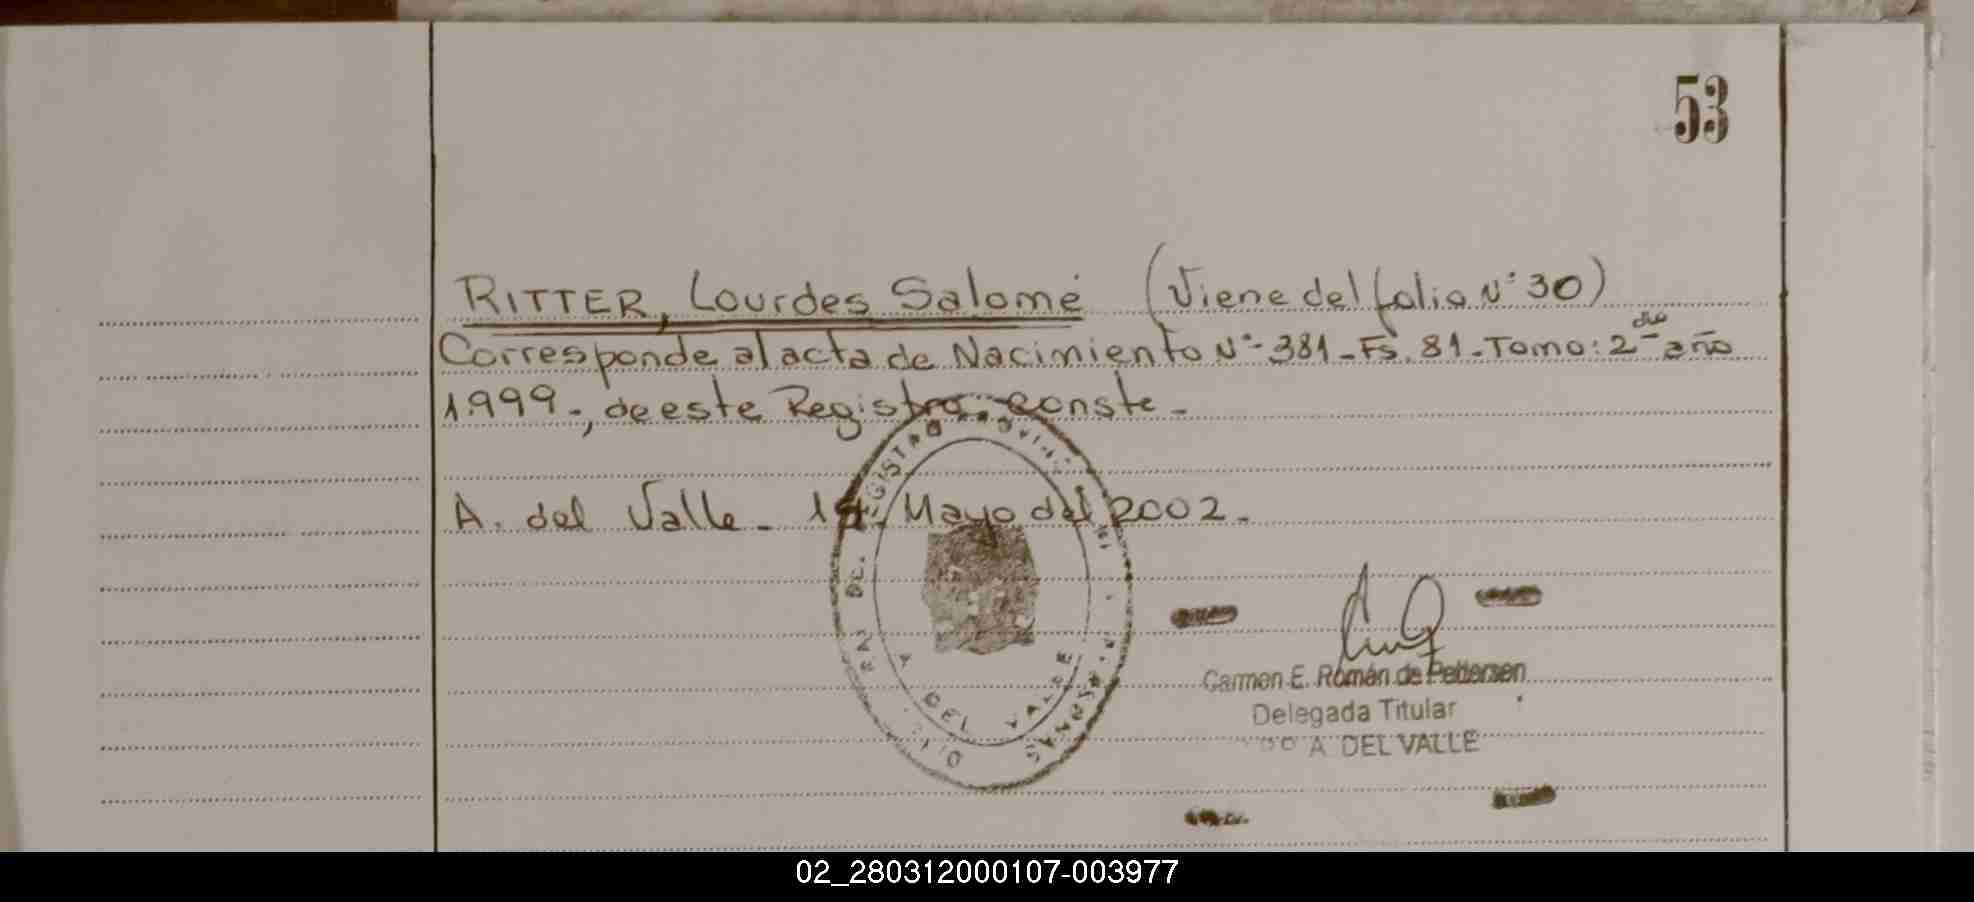 53
RITTER, Lourdes Salomé (Viene del folio N° 30)
Corresponde al acta de Nacimiento N°- 381_Fs. 81_Tomo: 2do año
1.999-, de este Registro. conste_
A. del Valle_ Mayo del 2002_
DIR. GRAL. DE REGISTRO PERSONAS
A DEL VALLE
Carmen E. Román de Pettersen
Delegada Titular
A. DEL VALLE
02_280312000107-003977